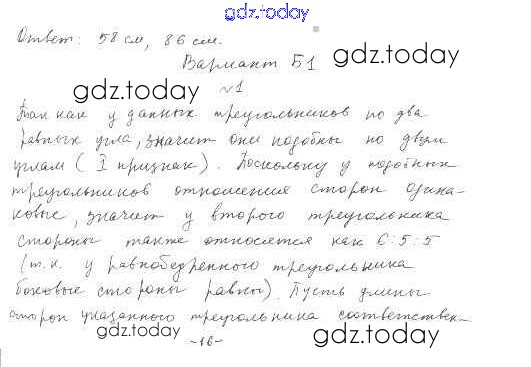 gdz.today
Ответ: 58 см, 86 см.
Вариант Б1
gdz.today
gdz.today
№1
Так как у данных треугольников по два
равных угла, значит они подобны по двум
углам (I признак). Поскольку у подобных
треугольников отношения сторон одина-
ковые, значит у второго треугольника
стороны также относятся как 6:5:5
(т.к. у равнобедренного треугольника
боковые стороны равны). Пусть длины
сторон указанного треугольника соответствен-
gdz.today
-16-
gdz.today